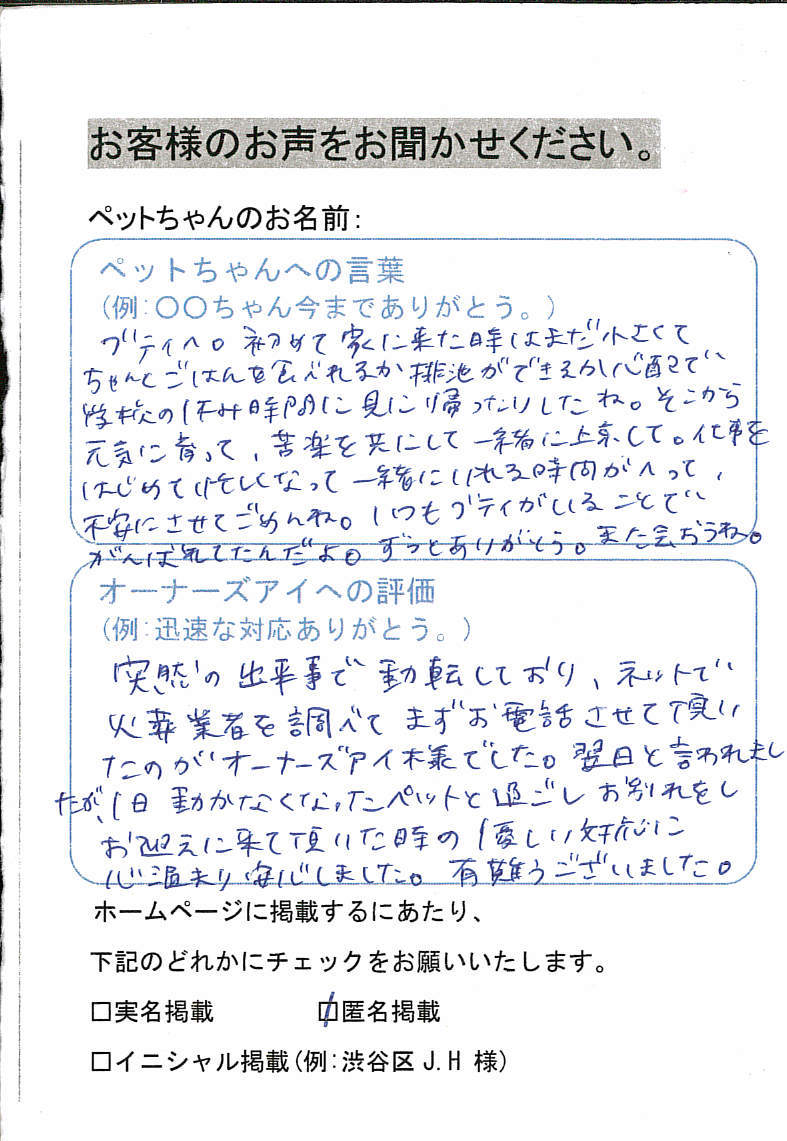 お客様のお声をお聞かせください。
ペットちゃんのお名前:
ペットちゃんへの言葉
(例:〇〇ちゃん今までありがとう。)
ブティへ。初めて家に来た時はまだ小さくて
ちゃんとごはんを食べれるか排泄ができるか心配で、
学校の休み時間に見に帰ったりしたね。そこから
元気に育って、苦楽を共にして一緒に上京して。仕事を
はじめて忙しくなって一緒にいれる時間がへって、
不安にさせてごめんね。いつもブティがいることで、
がんばれてたんだよ。ずっとありがとう。また会おうね。
オーナーズアイへの評価
(例:迅速な対応ありがとう。)
突然の出来事で動転しており、ネットで
火葬業者を調べてまずお電話させて頂い
たのがオーナーズアイ様でした。翌日と言われまし
たが、1日動かなくなったペットと過ごしお別れをし
お迎えに来て頂いた時の優しい対応に
心温まり安心しました。有難うございました。
ホームページに掲載するにあたり、
下記のどれかにチェックをお願いいたします。
□実名掲載 ☑匿名掲載
□イニシャル掲載(例:渋谷区 J.H 様)